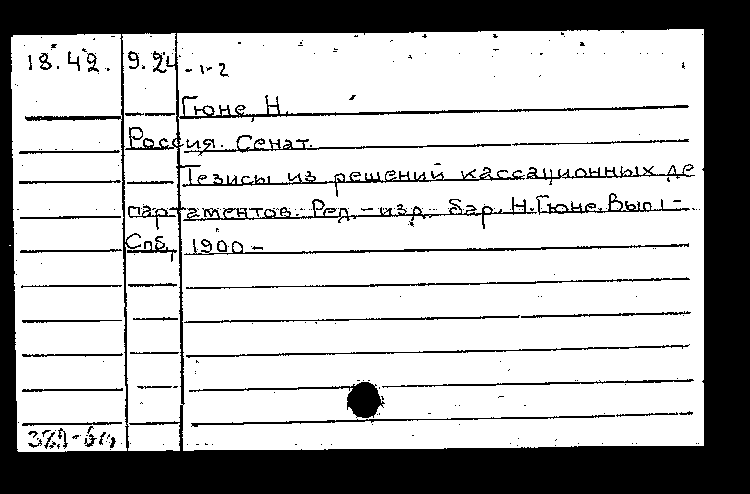 18.42. 9.24 - 1-2
Гюне, Н.
Россия. Сенат.
Тезисы из решений кассационных де
партаментов. Ред.-изд. бар. Н.Гюне. Вып 1-
Спб, 1900-